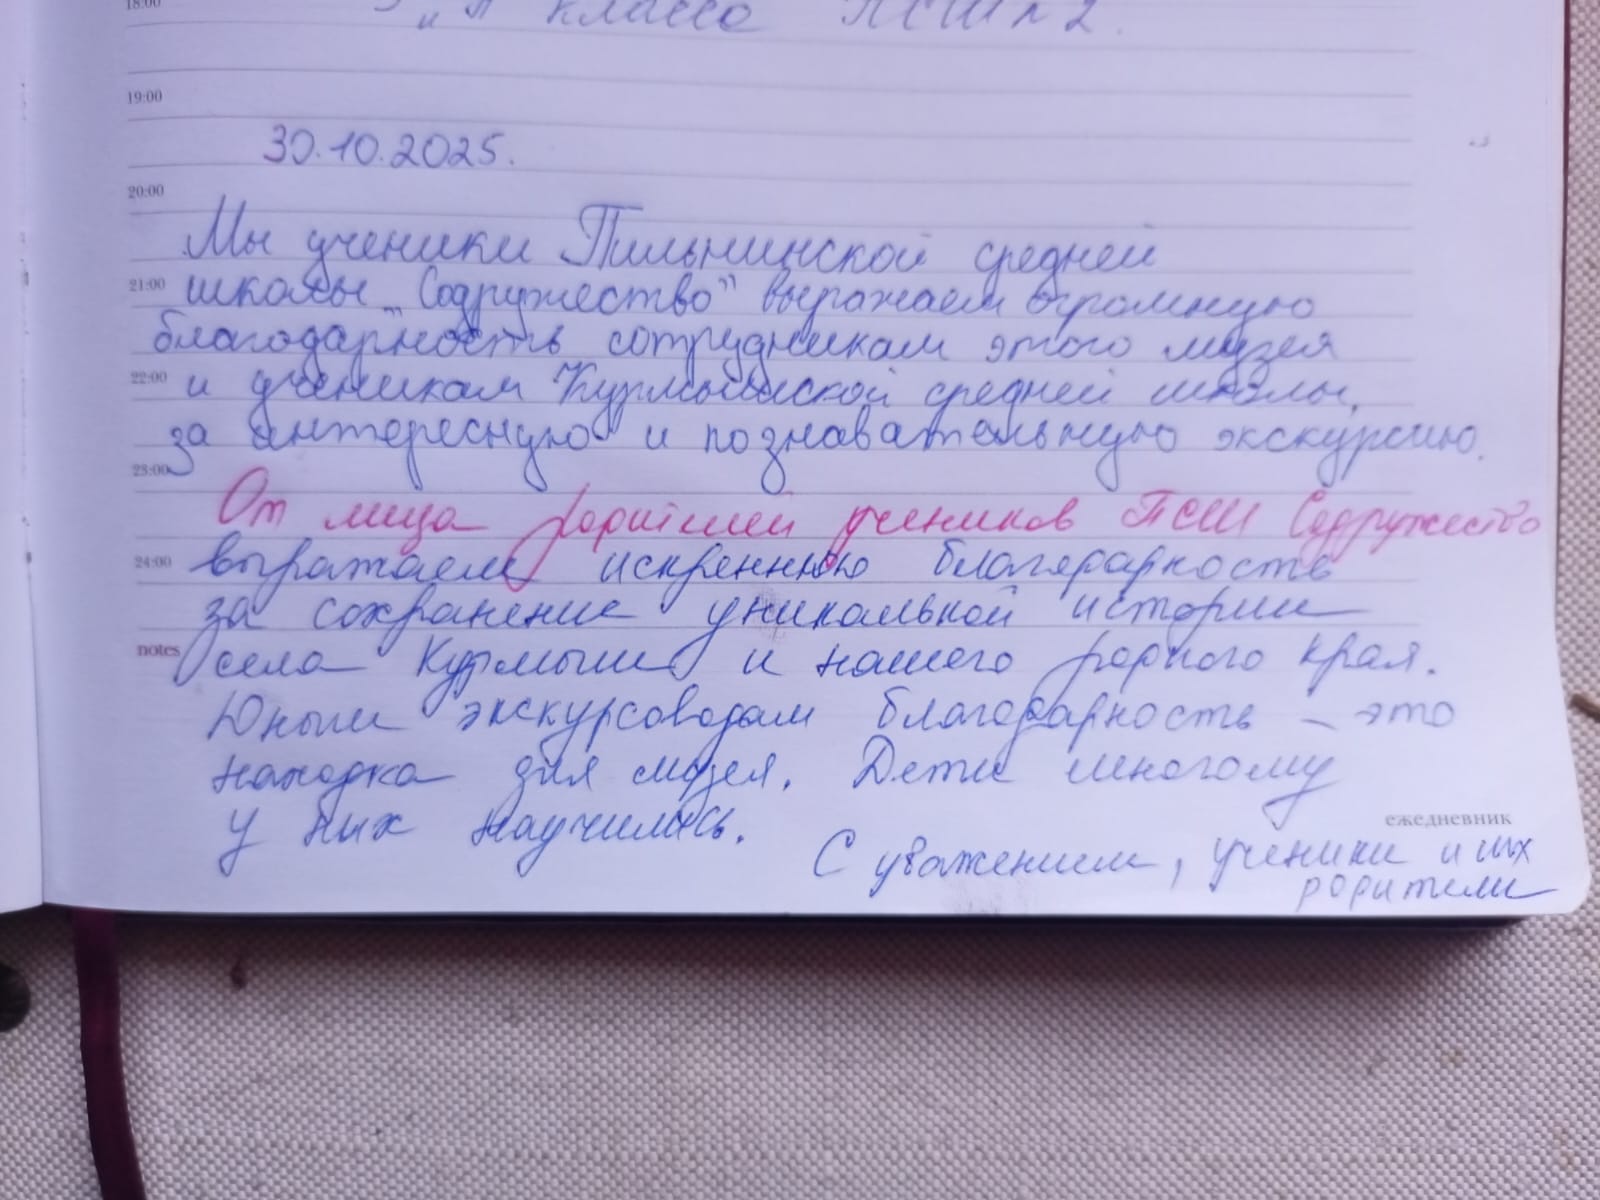 18:00
"А" класса ПСШ №2.
19:00
30.10.2025.
20:00
Мы ученики Пильнинской средней
21:00 школы "Содружество" выражаем огромную
благодарность сотрудникам этого музея
22:00 и ученикам Курмышской средней школы,
за интересную и познавательную экскурсию.
23:00
От лица родителей учеников ПСШ Содружество
24:00 выражаем искреннюю благодарность
за сохранение уникальной истории
notes села Курмыш и нашего родного края.
Юным экскурсоводам благодарность – это
находка для музея. Дети многому
у них научились.
ежедневник
С уважением, ученики и их
родители